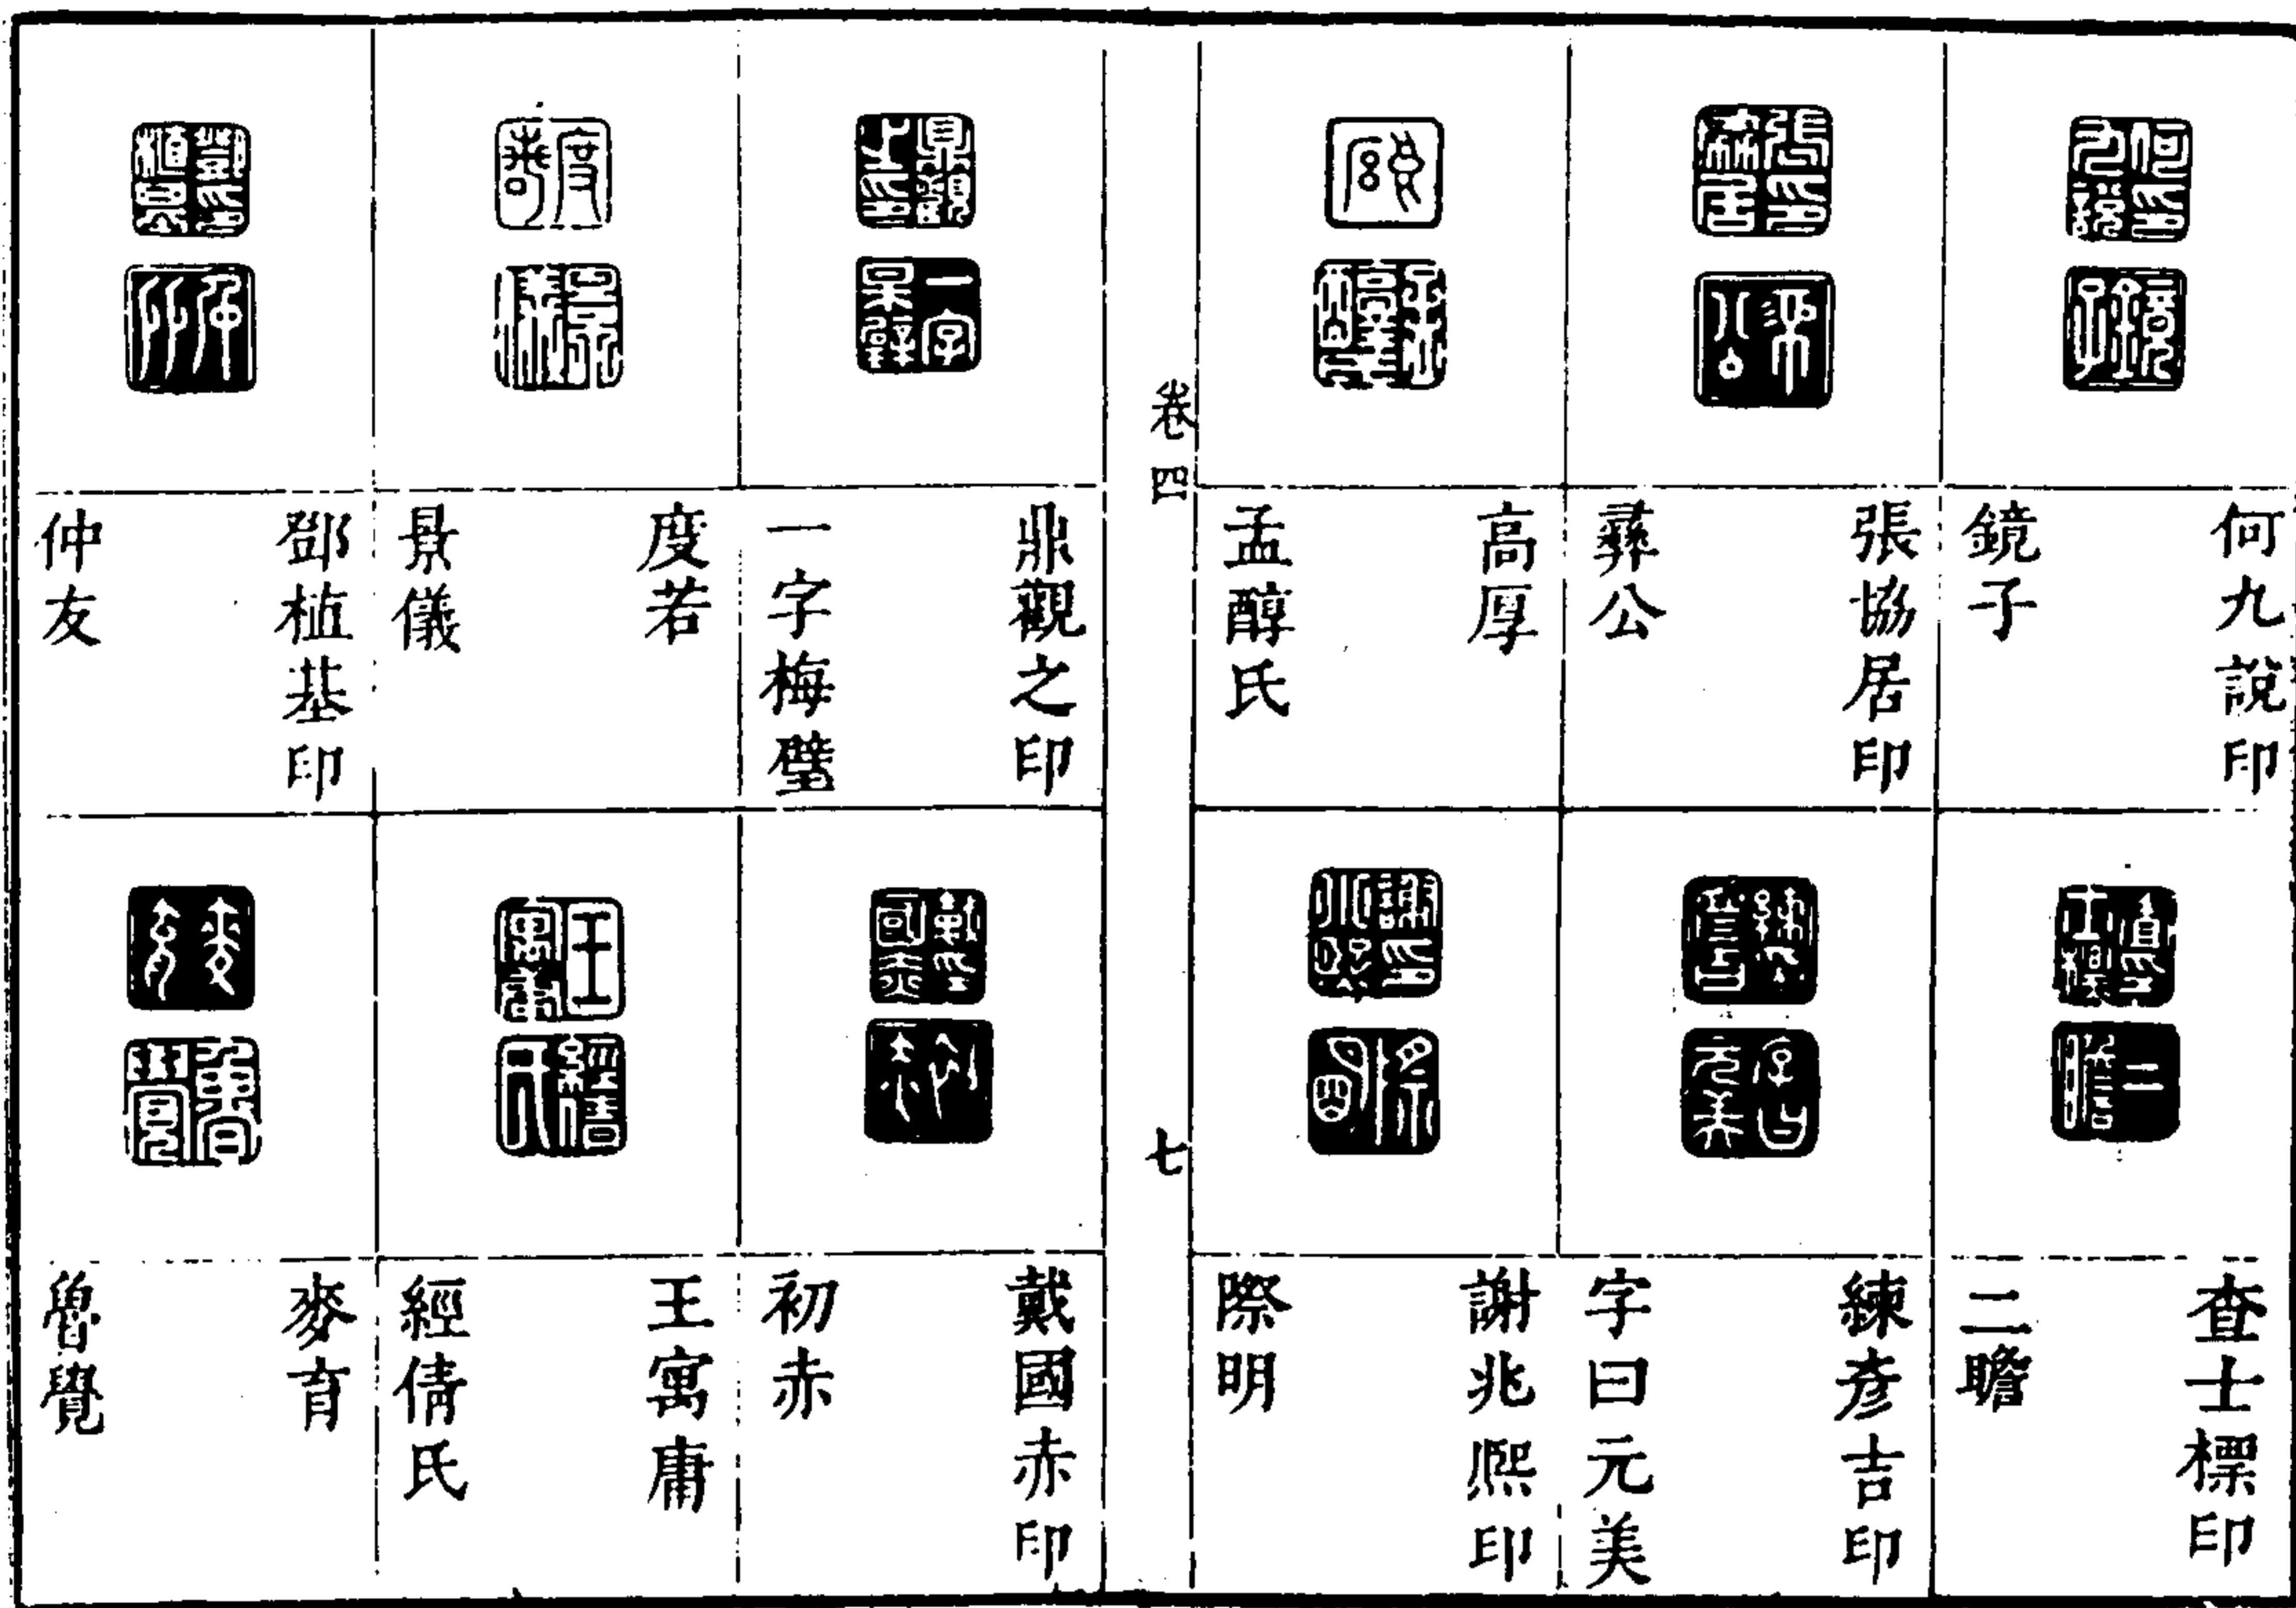 何九說印
鏡子
張協居印
彛公
高厚
孟醇氏
查士標印
二瞻
練彥吉印
字曰元美
謝兆熈印
際明
卷四
七
鼎觀之印
一字梅璧
度若
景儀
鄧植基印
仲友
戴國赤印
初赤
王寓庸
經倩氏
麥育
魯覺